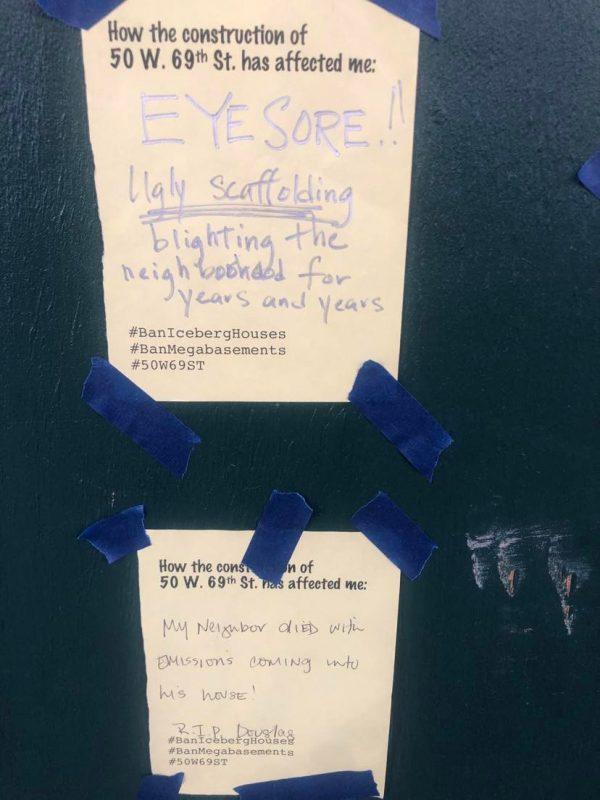 How the construction of
50 W. 69th St. has affected me:
EYESORE!!
Ugly Scaffolding
blighting the
neighboohood for
years and years
#BanIcebergHouses
#BanMegabasements
#50W69ST
How the const n of
50 W. 69th St. has affected me:
My Neighbor DIED with
EMISSIONS COMING into
his HOUSE!
R.I.P. Douglas
#BanIcebergHouses
#BanMegabasements
#50W69ST